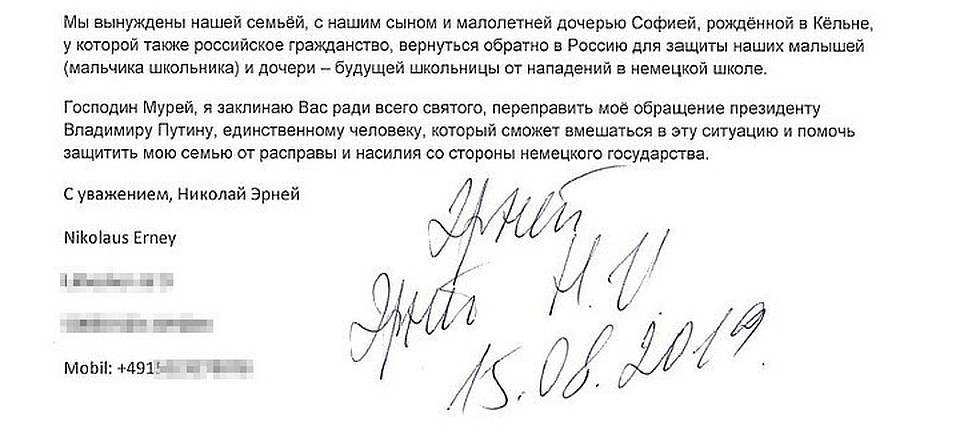 Мы вынуждены нашей семьёй, с нашим сыном и малолетней дочерью Софией, рождённой в Кёльне,
у которой также российское гражданство, вернуться обратно в Россию для защиты наших малышей
(мальчика школьника) и дочери – будущей школьницы от нападений в немецкой школе.
Господин Мурей, я заклинаю Вас ради всего святого, переправить моё обращение президенту
Владимиру Путину, единственному человеку, который сможет вмешаться в эту ситуацию и помочь
защитить мою семью от расправы и насилия со стороны немецкого государства.
С уважением, Николай Эрней
Nikolaus Erney
Mobil: +491
Эрней
Эрней Н.И
15.08.2019.